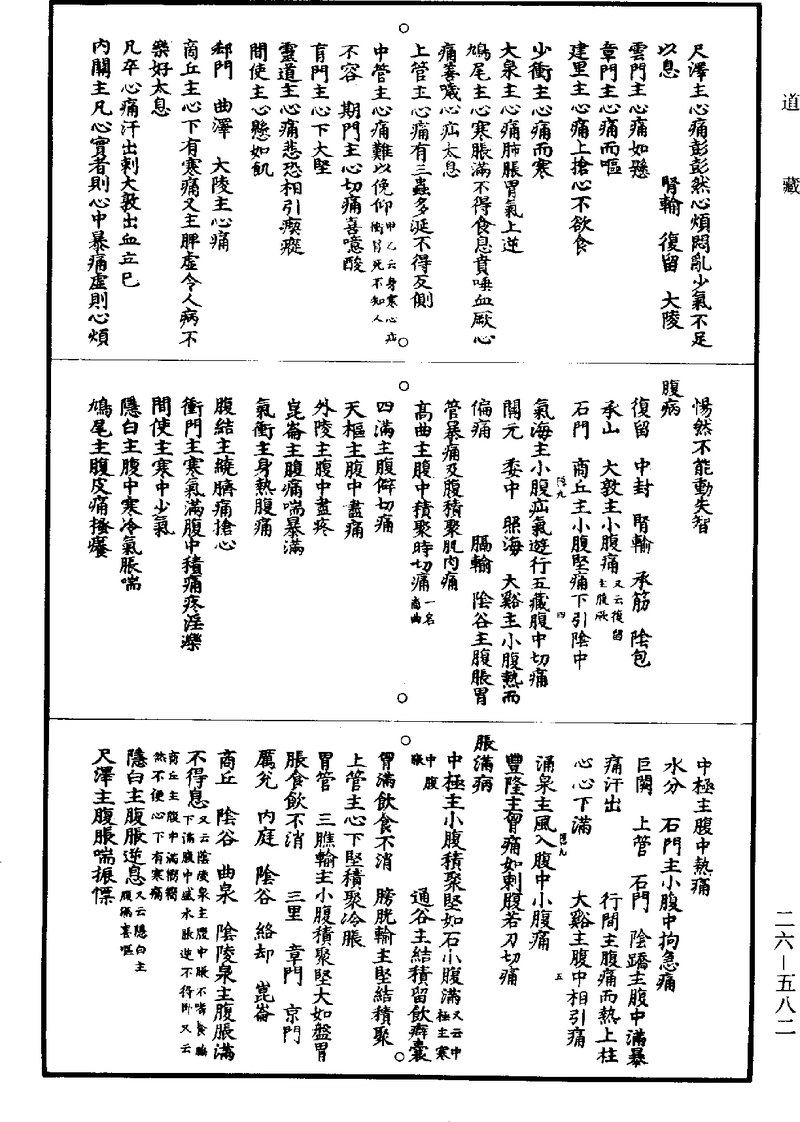 道藏
尺澤主心痛彭彭然心煩悶亂少氣不足
以息　腎輸　復留　大陵
雲門主心痛如懸
章門主心痛而嘔
建里主心痛上搶心不欲食
少衝主心痛而寒
大泉主心痛肺脹胃氣上逆
鳩尾主心寒脹滿不得食息賁唾血厥心
痛善噦心疝太息
上管主心痛有三蟲多涎不得反側
中管主心痛難以俛仰甲乙云身寒心疝衝冒死不知人
不容　期門主心切痛喜噫酸
肓門主心下大堅
靈道主心痛悲恐相引瘈瘲
間使主心懸如飢
郄門　曲澤　大陵主心痛
商丘主心下有寒痛又主脾虛令人病不
樂好太息
凡卒心痛汗出刺大敦出血立已
內關主凡心實者則心中暴痛虛則心煩
惕然不能動失智
腹病
復留　中封　腎輸　承筋　陰包
承山　大敦主小腹痛又云復留主腹厥
石門　商丘主小腹堅痛下引陰中
氣海主小腹疝氣遊行五藏腹中切痛
隱九　四
關元　委中　照海　大谿主小腹熱而
偏痛　膈輸　陰谷主腹脹胃
管暴痛及腹積聚肌肉痛
高曲主腹中積聚時切痛一名商曲
四滿主腹僻切痛
天樞主腹中盡痛
外陵主腹中盡疼
崑崙主腹痛喘暴滿
氣衝主身熱腹痛
腹結主繞臍痛搶心
衝門主寒氣滿腹中積痛疼淫濼
間使主寒中少氣
隱白主腹中寒冷氣脹喘
鳩尾主腹皮痛搔癢
中極主腹中熱痛
水分　石門主小腹中拘急痛
巨闕　上管　石門　陰蹻主腹中滿暴
痛汗出　行間主腹痛而熱上柱
心心下滿　大谿主腹中相引痛
涌泉主風入腹中小腹痛
隱九　五
豐隆主胷痛如刺腹若刀切痛
脹滿病
中極主小腹積聚堅如石小腹滿又云中極主寒中腹脹
通谷主結積留飲癖囊
胷滿飲食不消　膀胱輸主堅結積聚
上管主心下堅積聚冷脹
胃管　三膲輸主小腹積聚堅大如盤胃
脹食飲不消　三里　章門　京門
厲兊　內庭　陰谷　絡却　崑崙
商丘　陰谷　曲泉　陰陵泉主腹脹滿
不得息又云陰陵泉主腹中脹不嗜食脇下滿腹中盛水脹逆不得卧又云商丘主腹中滿嚮嚮然不便心下有寒痛
隱白主腹脹逆息又云隱白主腹滿喜嘔
尺澤主腹脹喘振慄
二六—五八二